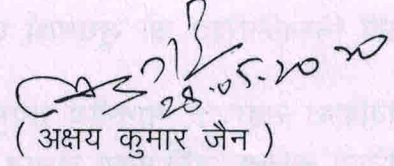 28.05.2020
( अक्षय कुमार जैन )